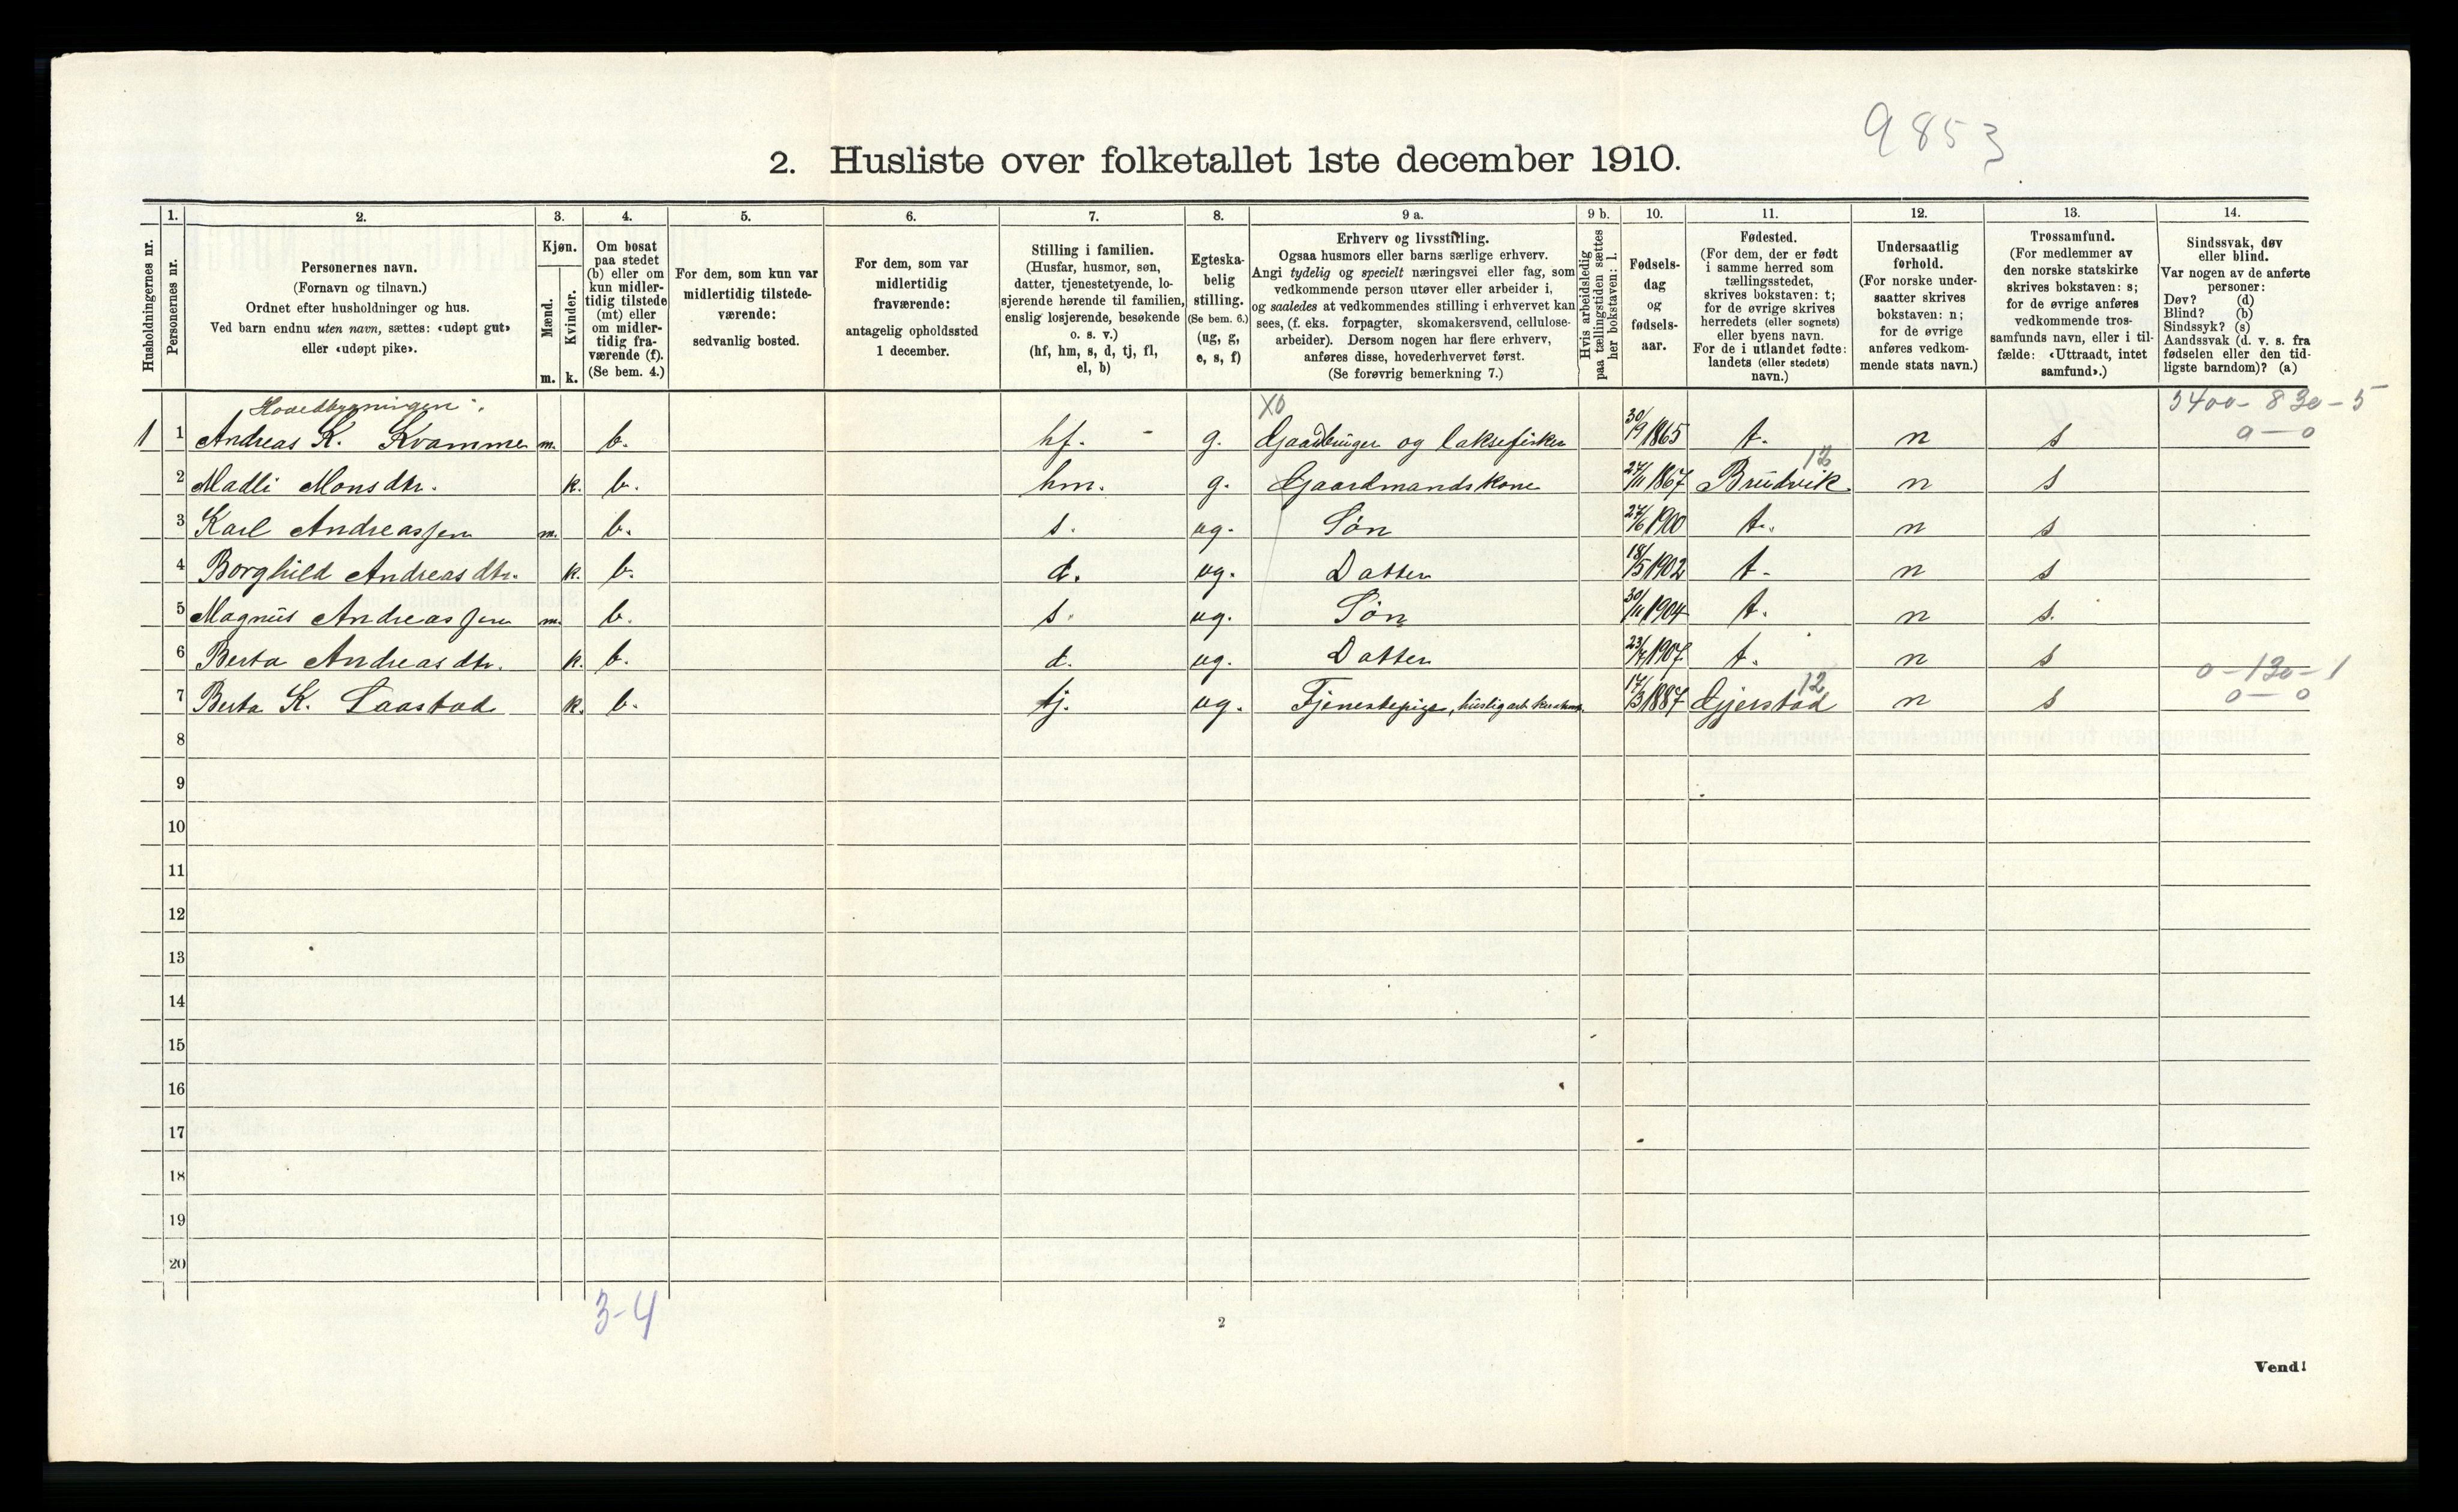 9853
2. Husliste over folketallet 1ste december 1910.
Husholdningernes nr.
1.
Personernes nr.
2.
Personernes navn.
(Fornavn og tilnavn.)
Ordnet efter husholdninger og hus.
Ved barn endnu uten navn, sættes: «udøpt gut»
eller «udøpt pike».
3.
Kjøn.
Mænd.
Kvinder.
m. k.
4.
Om bosat
paa stedet
(b) eller om
kun midler-
tidig tilstede
(mt) eller
om midler-
tidig fra-
værende (f).
(Se bem. 4.)
5.
For dem, som kun var
midlertidig tilstede-
værende:
sedvanlig bosted.
6.
For dem, som var
midlertidig
fraværende:
antagelig opholdssted
1 december.
7.
Stilling i familien.
(Husfar, husmor, søn,
datter, tjenestetyende, lo-
sjerende hørende til familien,
enslig losjerende, besøkende
o. s. v.)
(hf, hm, s, d, tj, fl,
el, b)
8.
Egteska-
belig
stilling.
(Se bem. 6.)
(ug, g,
e, s, f)
9 a.
Erhverv og livsstilling.
Ogsaa husmors eller barns særlige erhverv.
Angi tydelig og specielt næringsvei eller fag, som
vedkommende person utøver eller arbeider i,
og saaledes at vedkommendes stilling i erhvervet kan
sees, (f. eks. forpagter, skomakersvend, cellulose-
arbeider). Dersom nogen har flere erhverv,
anføres disse, hovederhvervet først.
(Se forøvrig bemerkning 7.)
9 b.
Hvis arbeidsledig
paa tællingstiden sættes
her bokstaven: l.
10.
Fødsels-
dag
og
fødsels-
aar.
11.
Fødested.
(For dem, der er født
i samme herred som
tællingsstedet,
skrives bokstaven: t;
for de øvrige skrives
herredets (eller sognets)
eller byens navn.
For de i utlandet fødte:
landets (eller stedets)
navn.)
12.
Undersaatlig
forhold.
(For norske under-
saatter skrives
bokstaven: n;
for de øvrige
anføres vedkom-
mende stats navn.)
13.
Trossamfund.
(For medlemmer av
den norske statskirke
skrives bokstaven: s;
for de øvrige anføres
vedkommende tros-
samfunds navn, eller i til-
fælde: «Uttraadt, intet
samfund».)
14.
Sindssvak, døv
eller blind.
Var nogen av de anførte
personer:
Døv? (d)
Blind? (b)
Sindssyk? (s)
Aandssvak (d. v. s. fra
fødselen eller den tid-
ligste barndom)? (a)
Hovedbygningen. X0 5400-830-5
1 1 Andreas K. Kvamme m. b. hf. - g. Gaardbruger og laksefisker 30/9 1865 t. n s 0-0
2 Madli Monsdtr. k. b. hm. g. Gaardmandskone 27/11 1867 Brudvik 12 n s
3 Karl Andreassen m. b. s. ug. Søn 27/6 1900 t. n s
4 Borghild Andreasdtr. k. b. d. ug. Datter 18/5 1902 t. n s
5 Magnus Andreassen m. b. s. ug. Søn 30/11 1904 t. n s.
6 Berta Andreasdtr. k. b. d. ug. Datter 1907 t. n s
0-130-1
7 Berta K. Laastad k. b. tj. ug. Tjenestepige, huslig arb. 17/3 1887 Gjerstad 12 n s 0-0
8
9
10
11
12
13
14
15
16
17
18
19
20
3-4
2
Vend!